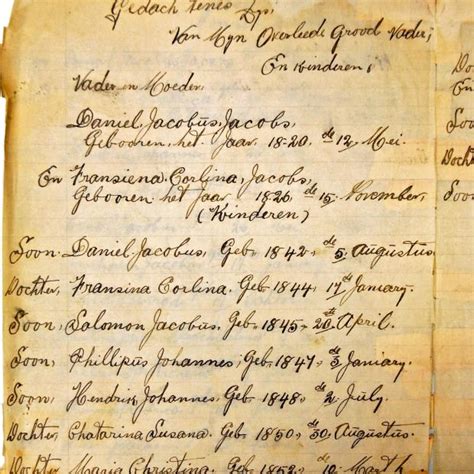 Gedach tenes Dp;
Van Myn Overleede Grood Vader;
En Kinderen;
Vader en Moeder
Daniel, Jacobus, Jacobs,
Gebooren, het Jaar 1820, de 12, Mei.
En Fransiena, Corlina, Jacobs,
Gebooren het Jaar 1826 de 15, November,
(Kinderen)
Soon, Daniel Jacobus, Geb 1842, de 5, Augustus.
Dochter, Fransina Corlina. Geb 1844, 17 de January.
Soon, Salomon Jacobus, Geb, 1845 20 de April.
Soon, Phillipus Johannes, Geb, 1847 de 3 January.
Soon, Hendrik Johannes, Geb 1848 de 2 July.
Dochter, Chatarina Susana. Geb 1850, de 30, Augustus.
Dochter, Maria Christina, Geb
Do
En
Soo
Dochter
Soo
Do
Soo